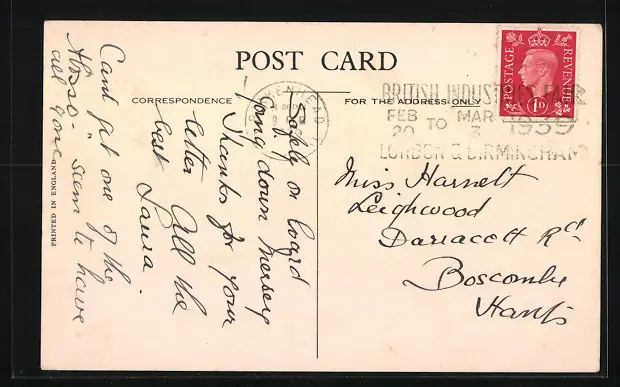 POST CARD
CORRESPONDENCE
FOR THE ADDRESS ONLY
POSTAGE
REVENUE
1D
BRITISH INDUSTRIES FAIR
FEB MAR
20 TO 3 1939
LONDON & BIRMINGHAM
Safely on board
Going down Mersey
Thanks for your
letter All the
best Laura.
Cant get one of the
- seem to have
all gone
Miss Harnett
Leighwood
Darracott Rd
Boscombe
Hants
PRINTED IN ENGLAND